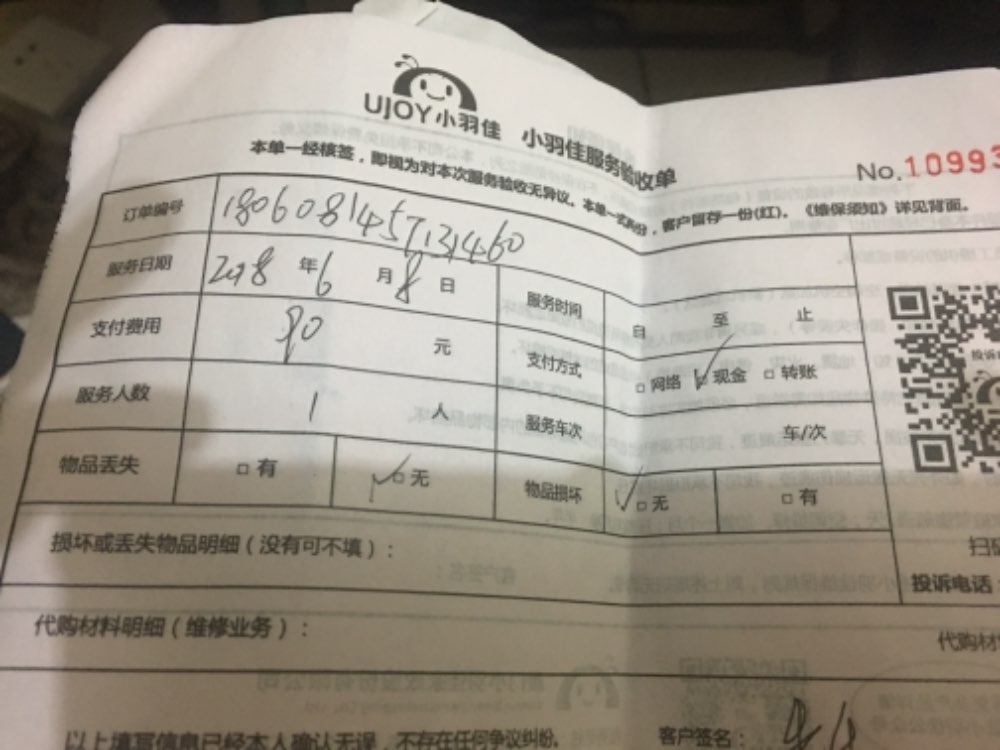 UJOY小羽佳 小羽佳服务验收单
No.10993
本单一经核签，即视为对本次服务验收无异议。本单一式两份，客户留存一份(红)。《维保须知》详见背面。
订单编号 1806081457131460
服务日期 2018 年 6 月 8 日 服务时间 自 至 止
支付费用 90 元 支付方式 □网络 ☑现金 □转账
服务人数 1 人 服务车次 车/次
物品丢失 □有 ☑无 物品损坏 ☑无 □有
损坏或丢失物品明细（没有可不填）：
投诉电话
代购材料明细（维修业务）：
以上填写信息已经本人确认无误，不存在任何争议纠纷。 客户签名：